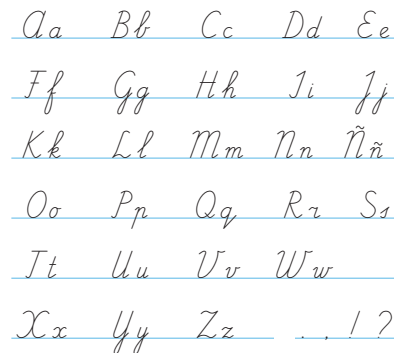 Aa Bb Cc Dd Ee
Ff Gg Hh Ii Jj
Kk Ll Mm Nn Ññ
Oo Pp Qq Rr Ss
Tt Uu Vv Ww
Xx Yy Zz . , ! ?